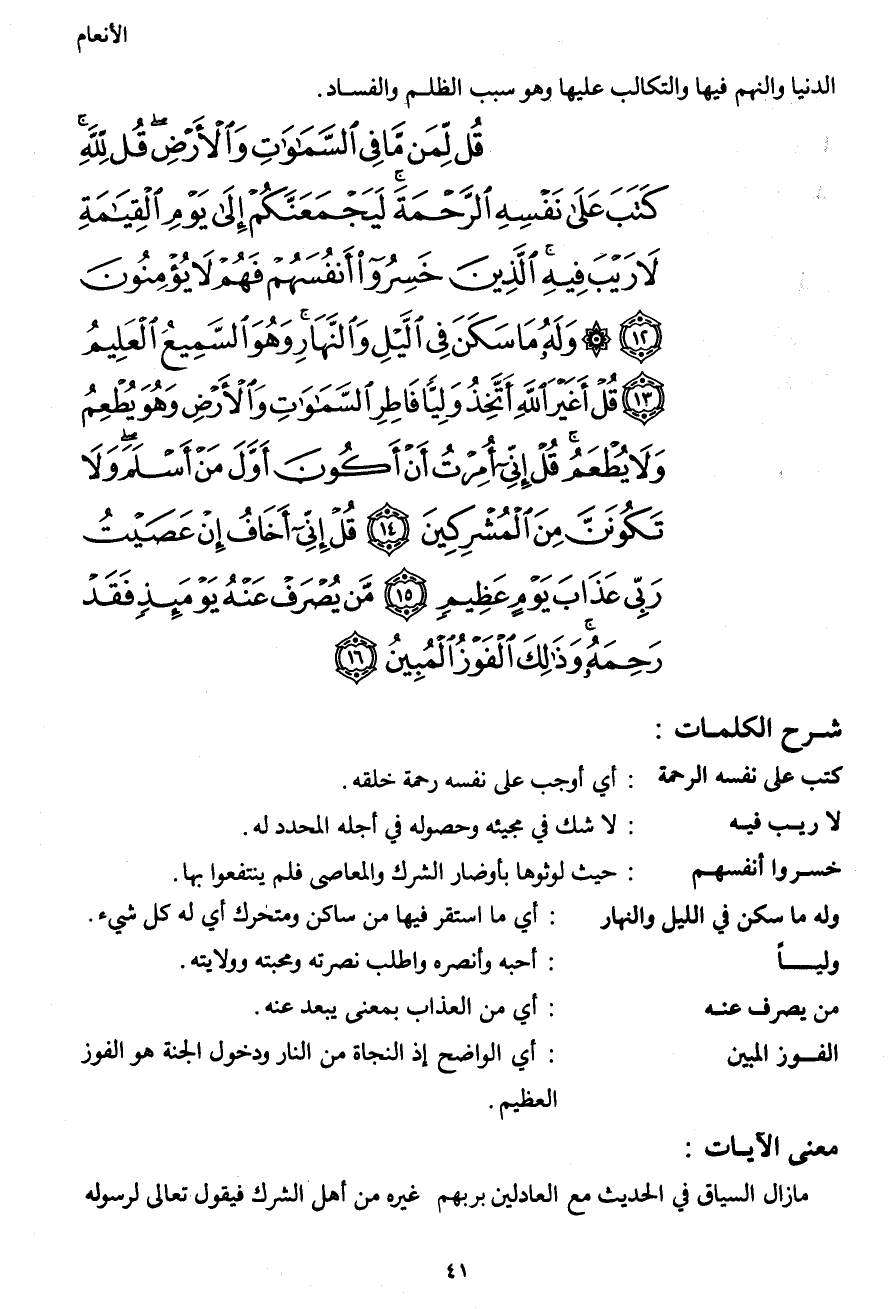 الأنعام
الدنيا والنهم فيها والتكالب عليها وهو سبب الظلـم والفسـاد.
قُل لِّمَن مَّا فِي ٱلسَّمَٰوَٰتِ وَٱلْأَرْضِۖ قُل لِّلَّهِۚ
كَتَبَ عَلَىٰ نَفْسِهِ ٱلرَّحْمَةَۚ لَيَجْمَعَنَّكُمْ إِلَىٰ يَوْمِ ٱلْقِيَٰمَةِ
لَا رَيْبَ فِيهِۚ ٱلَّذِينَ خَسِرُوٓا۟ أَنفُسَهُمْ فَهُمْ لَا يُؤْمِنُونَ
﴿١٢﴾ ۞ وَلَهُۥ مَا سَكَنَ فِي ٱلَّيْلِ وَٱلنَّهَارِۚ وَهُوَ ٱلسَّمِيعُ ٱلْعَلِيمُ
﴿١٣﴾ قُلْ أَغَيْرَ ٱللَّهِ أَتَّخِذُ وَلِيًّا فَاطِرِ ٱلسَّمَٰوَٰتِ وَٱلْأَرْضِ وَهُوَ يُطْعِمُ
وَلَا يُطْعَمُۗ قُلْ إِنِّيٓ أُمِرْتُ أَنْ أَكُونَ أَوَّلَ مَنْ أَسْلَمَۖ وَلَا
تَكُونَنَّ مِنَ ٱلْمُشْرِكِينَ ﴿١٤﴾ قُلْ إِنِّيٓ أَخَافُ إِنْ عَصَيْتُ
رَبِّي عَذَابَ يَوْمٍ عَظِيمٍ ﴿١٥﴾ مَّن يُصْرَفْ عَنْهُ يَوْمَئِذٍ فَقَدْ
رَحِمَهُۥۚ وَذَٰلِكَ ٱلْفَوْزُ ٱلْمُبِينُ ﴿١٦﴾
شـرح الكلمـات :
كتب على نفسه الرحمة : أي أوجب على نفسه رحمة خلقه .
لا ريـب فيـه : لا شك في مجيئه وحصوله في أجله المحدد له .
خسـروا أنفسهـم : حيث لوثوها بأوضار الشرك والمعاصى فلم ينتفعوا بها .
وله ما سكن في الليل والنهار : أي ما استقر فيها من ساكن ومتحرك أي له كل شيء .
وليـــاً : أحبه وأنصره واطلب نصرته ومحبته وولايته .
من يصرف عنـه : أي من العذاب بمعنى يبعد عنه .
الفـوز المبين : أي الواضح إذ النجاة من النار ودخول الجنة هو الفوز
العظيم .
معنى الآيـات :
مازال السياق في الحديث مع العادلين بربهم غيره من أهل الشرك فيقول تعالى لرسوله
٤١